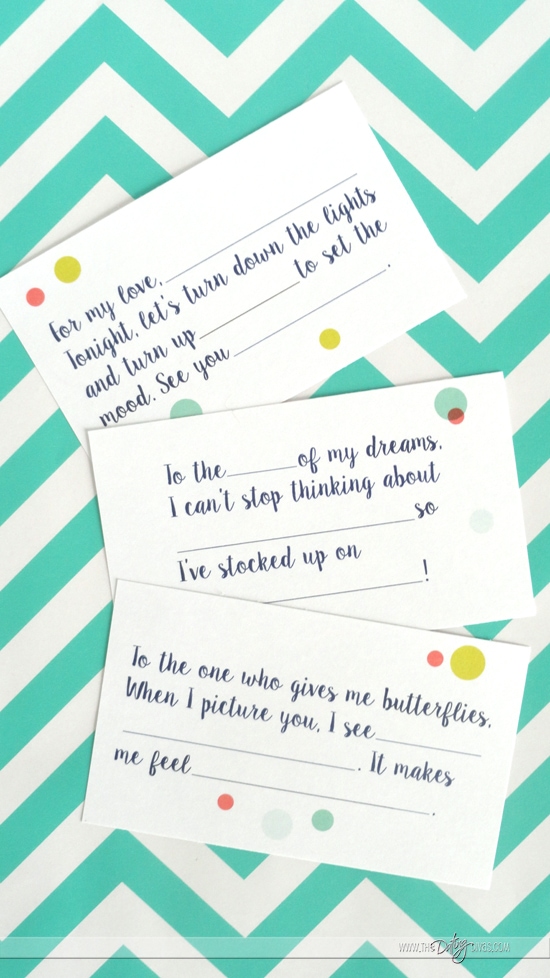 For my love,____________
Tonight, let's turn down the lights
and turn up____________to set the
mood. See you____________.
To the______of my dreams,
I can't stop thinking about
____________so
I've stocked up on
____________!
To the one who gives me butterflies.
When I picture you, I see____________
____________. It makes
me feel____________.
WWW.THEDatingDIVAS.COM